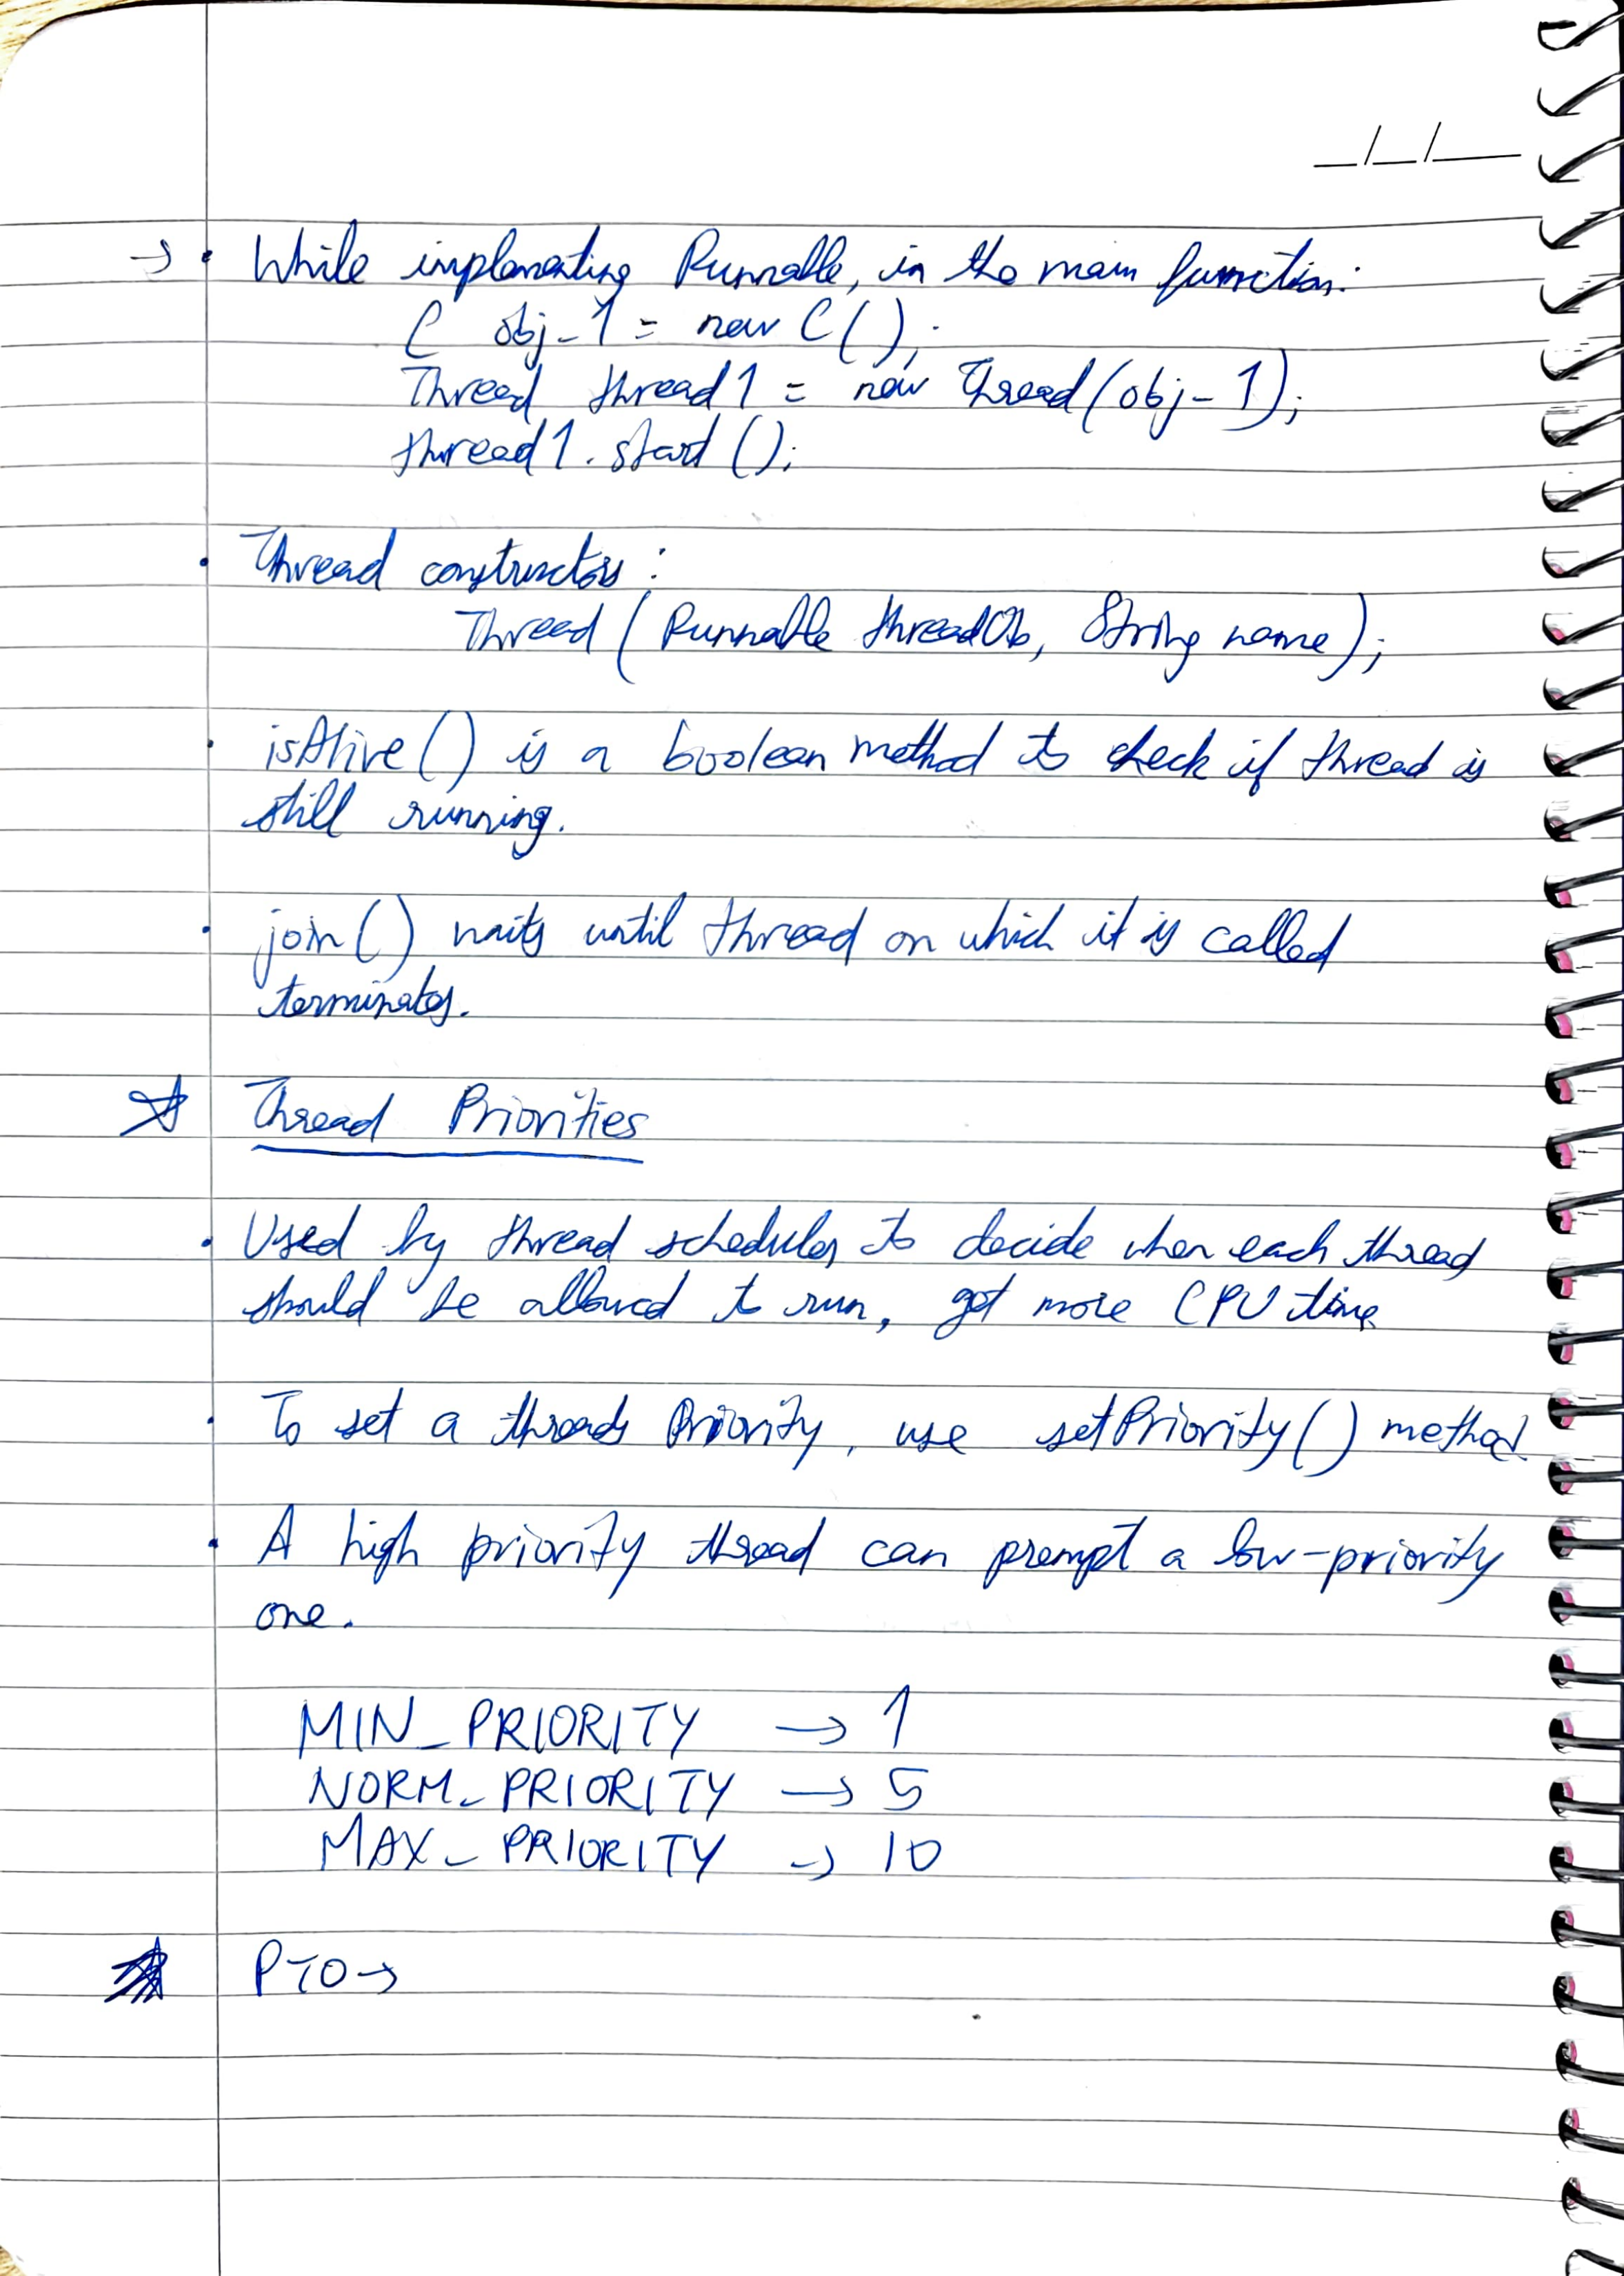 _/_/__
→ • While implementing Runnable, in the main function:
C obj_1 = new C();
Thread thread1 = new Thread(obj_1);
thread1.start();
• Thread constructors :
Thread (Runnable threadOb, String name);
• isAlive() is a boolean method to check if thread is
still running.
• join() waits until thread on which it is called
terminates.
☆ Thread Priorities
• Used by thread scheduler to decide when each thread
should be allowed to run, get more CPU time
• To set a threads Priority, use setPriority() method.
• A high priority thread can prempt a low-priority
one.
MIN_PRIORITY → 1
NORM_PRIORITY → 5
MAX_PRIORITY → 10
★ PTO→